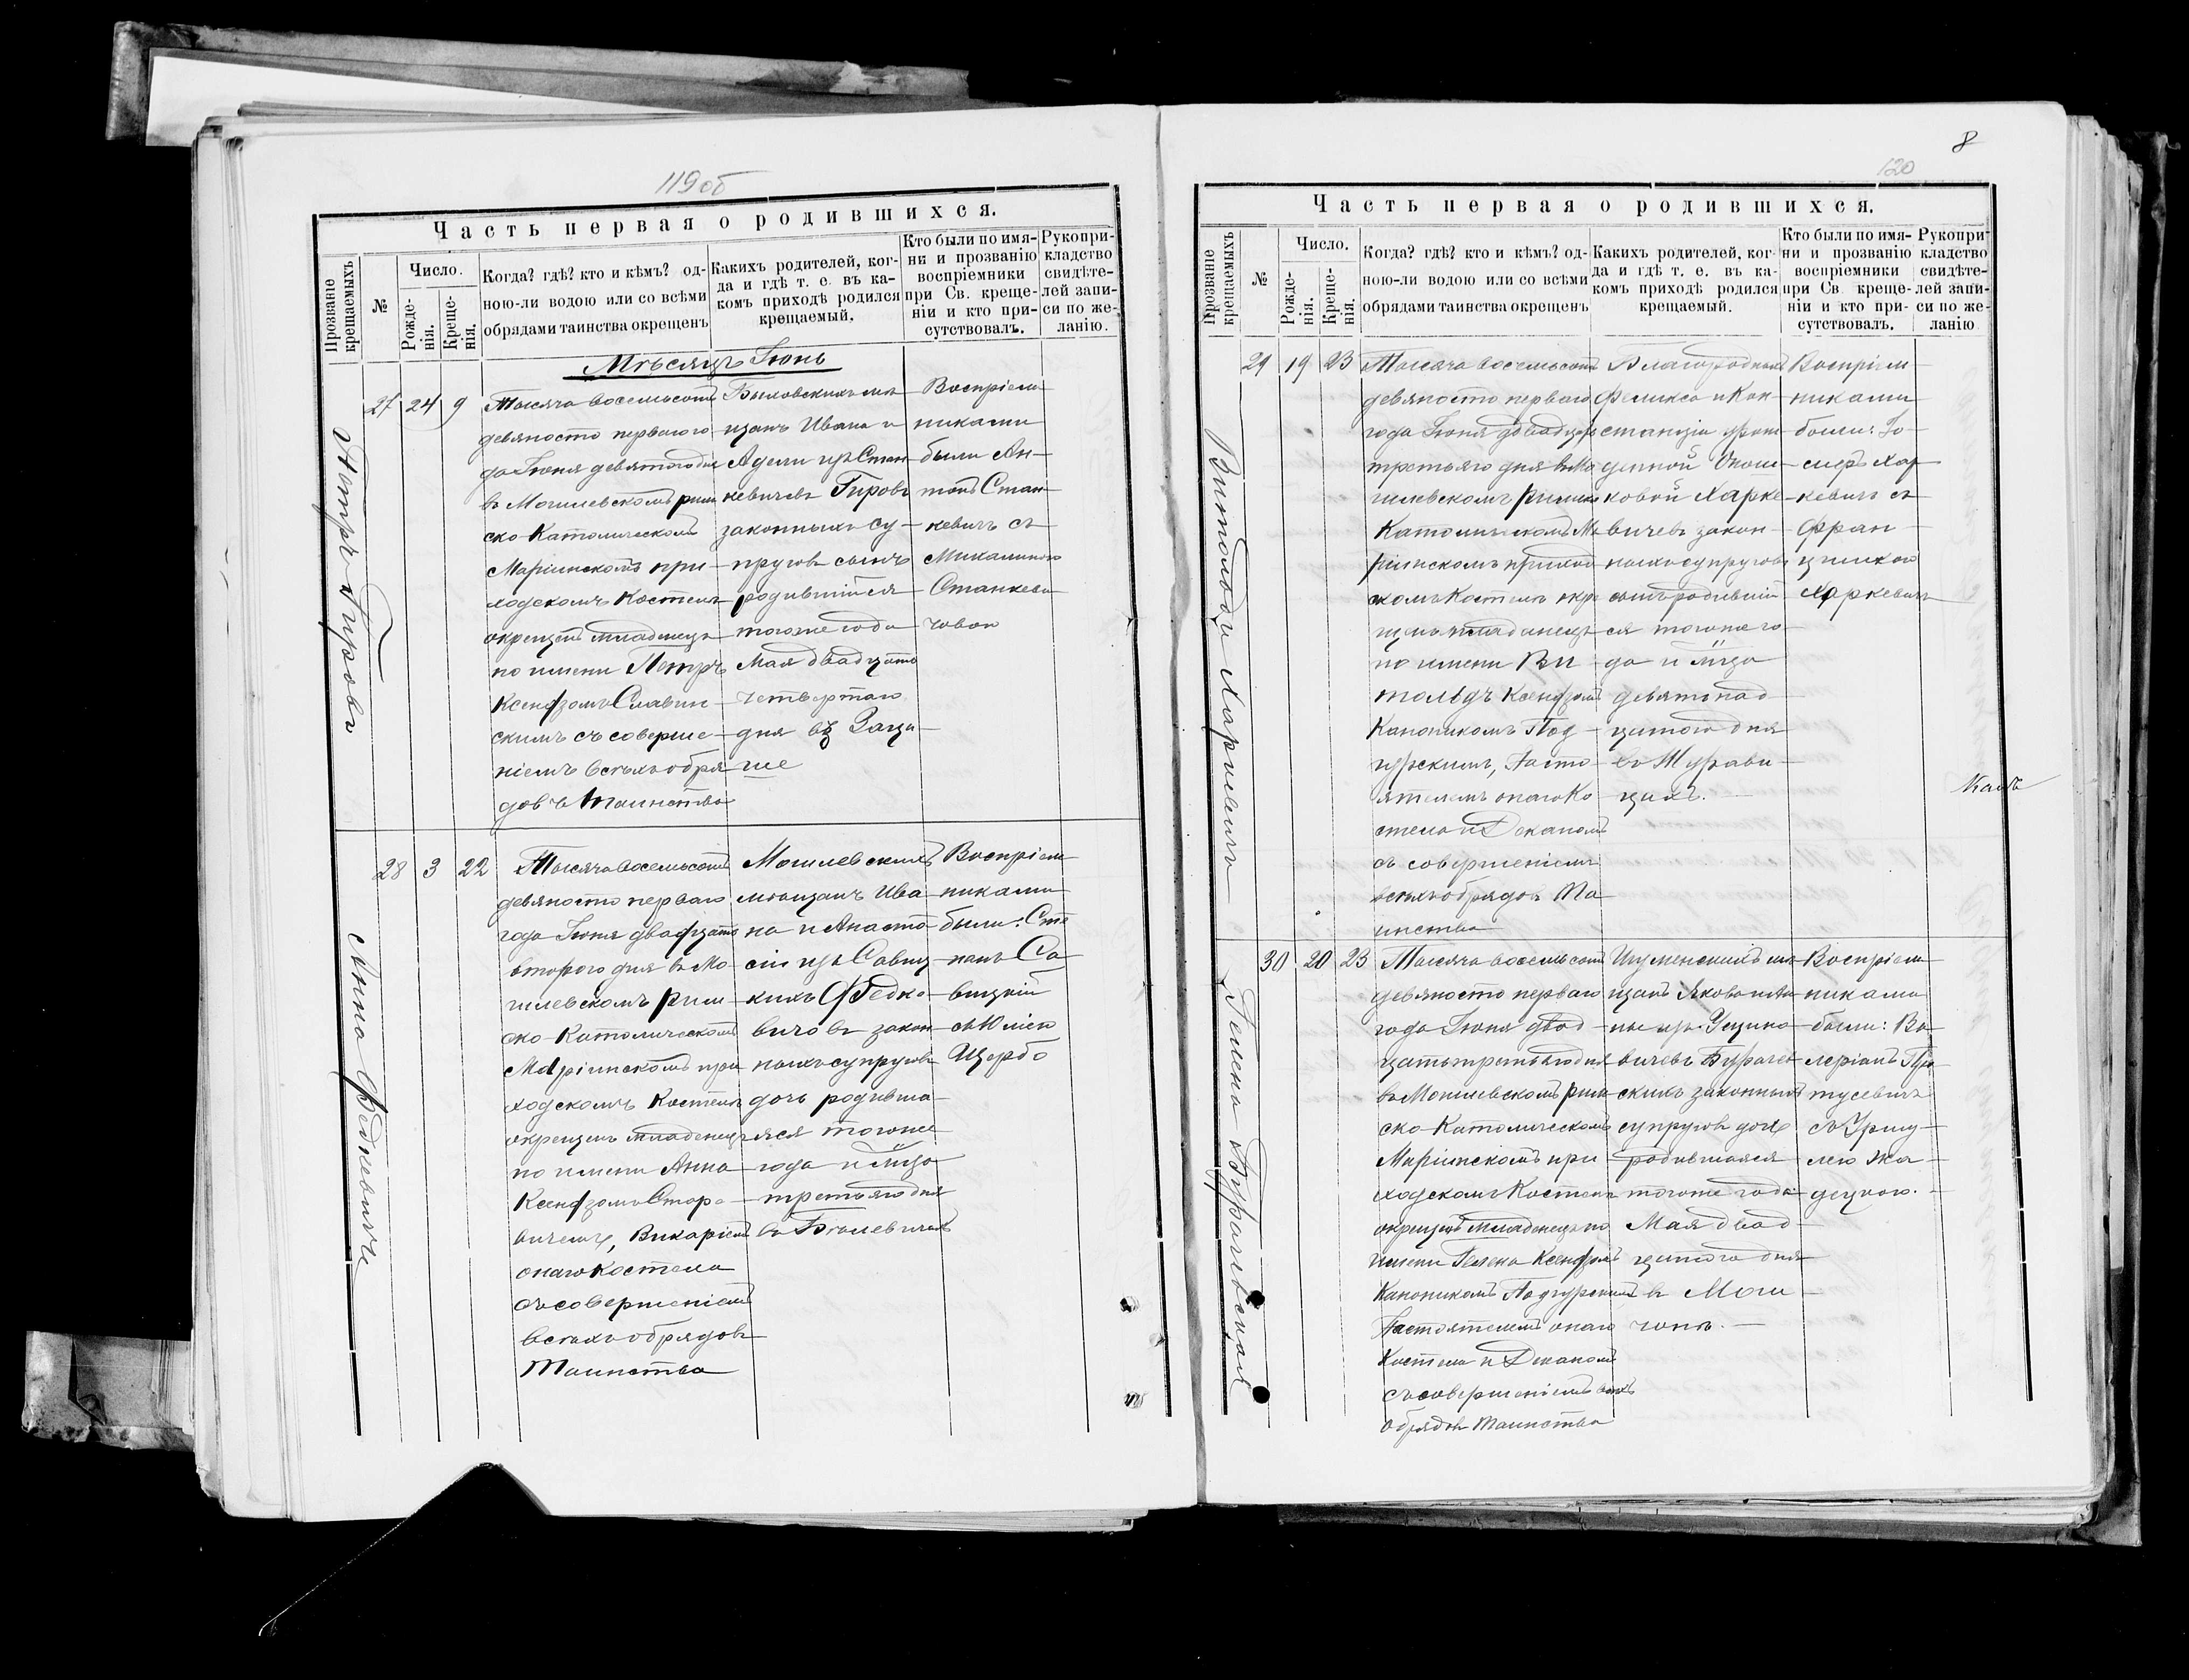 119об
Часть первая о родившихся.
Прозваніе крещаемыхъ
№
Число.
Рожде-
нія.
Креще-
нія.
Когда? гдѣ? кто и кѣмъ? од-
ною-ли водою или со всѣми
обрядами таинства окрещенъ
Какихъ родителей, ког-
да и гдѣ т. е. въ ка-
комъ приходѣ родился
крещаемый.
Кто были по имя-
ни и прозванію
воспріемники
при Св. креще-
ніи и кто при-
сутствовалъ.
Рукопри-
кладство
свидѣте-
лей запи-
си по же-
ланію.
Мѣсяцъ Іюнь
Петръ Гировъ
27 24 9
Тысяча восемьсотъ
девяносто перваго го
да Іюня девятаго дня
въ Могилевскомъ рим
ско-Католическомъ
Маріинскомъ при-
ходскомъ Костелѣ
окрещенъ младенецъ
по имени Петръ
Ксендзомъ Славин-
скимъ съ соверше-
ніемъ всѣхъ обря
довъ Таинства
Быховскихъ мѣ
щанъ Ивана и
Адели изъ Стан-
кевичевъ Гировъ
законныхъ су-
пруговъ сынъ
родившійся
того же года
Мая двадцать
четвертаго
дня въ
Воспріем
никами
были Ан-
тонъ Стан
кевичъ съ
Михалиною
Станкеви
човою
Анна Федковичъ
28 3 22
Тысяча восемьсотъ
девяносто перваго
года Іюня двадцать
втораго дня въ Мо-
гилевскомъ рим-
ско-Католическомъ
Маріинскомъ при
ходскомъ Костелѣ
окрещенъ младенецъ
по имени Анна
Ксендзомъ
Викаріемъ
онаго Костела
съ совершеніемъ
всѣхъ обрядовъ
Таинства
Могилевскихъ
мѣщанъ Ива
на и Анаста
сіи изъ Савиц
кихъ Федко-
вичовъ закон
ныхъ супруговъ
дочь родивша-
яся того же
года и м-ца
третьяго дня
въ
Воспріем
никами
были: Сте
панъ Са-
вицкій
съ Юліею
Щербо
8
120
Часть первая о родившихся.
Прозваніе крещаемыхъ
№
Число.
Рожде-
нія.
Креще-
нія.
Когда? гдѣ? кто и кѣмъ? од-
ною-ли водою или со всѣми
обрядами таинства окрещенъ
Какихъ родителей, ког-
да и гдѣ т. е. въ ка-
комъ приходѣ родился
крещаемый.
Кто были по имя-
ни и прозванію
воспріемники
при Св. креще-
ніи и кто при-
сутствовалъ.
Рукопри-
кладство
свидѣте-
лей запи-
си по же-
ланію
Витольдъ Харкевичъ
29 19 23
Тысяча восемьсотъ
девяносто перваго
года Іюня двадцать
третьяго дня въ Мо
гилевскомъ Римско
Католическомъ Ма
ріинскомъ приход
скомъ Костелѣ окре
щенъ младенецъ
по имени Ви
тольдъ Ксендзомъ
Каноникомъ Под-
гурскимъ, Насто-
ятелемъ онаго Ко
стела и Деканомъ
съ совершеніемъ
всѣхъ обрядовъ Та
инства
Благородныхъ
Феликса и Кон-
станціи урож
денной
ковой Харке-
вичевъ закон-
ныхъ супруговъ
сынъ родившій
ся того же го-
да и м-ца
девятнад
цатаго дня
въ Журави-
цахъ.
Воспріем
никами
были: Іо-
сифъ Хар
кевичъ съ
Фран
цишкою
Харкевичъ
Гелена Бурачевская
30 20 23
Тысяча восемьсотъ
девяносто перваго
года Іюня двад-
цать третьяго дня
въ Могилевскомъ рим
ско-Католическомъ
Маріинскомъ при
ходскомъ Костелѣ
окрещенъ младенецъ по
имени Гелена Ксендзомъ
Каноникомъ Подгурскимъ
Настоятелемъ онаго
Костела и Деканомъ
съ совершеніемъ всѣхъ
обрядовъ Таинства
Игуменскихъ мѣ
щанъ Якова и Ан
ны изъ
вичевъ Бурачев
скихъ законныхъ
супруговъ дочь
родившаяся
того же года
Мая двад-
цатаго дня
въ Моги-
Воспріем
никами
были: Ва-
леріанъ
тусевичъ
съ Уршу-
лею Жа-
децкою.